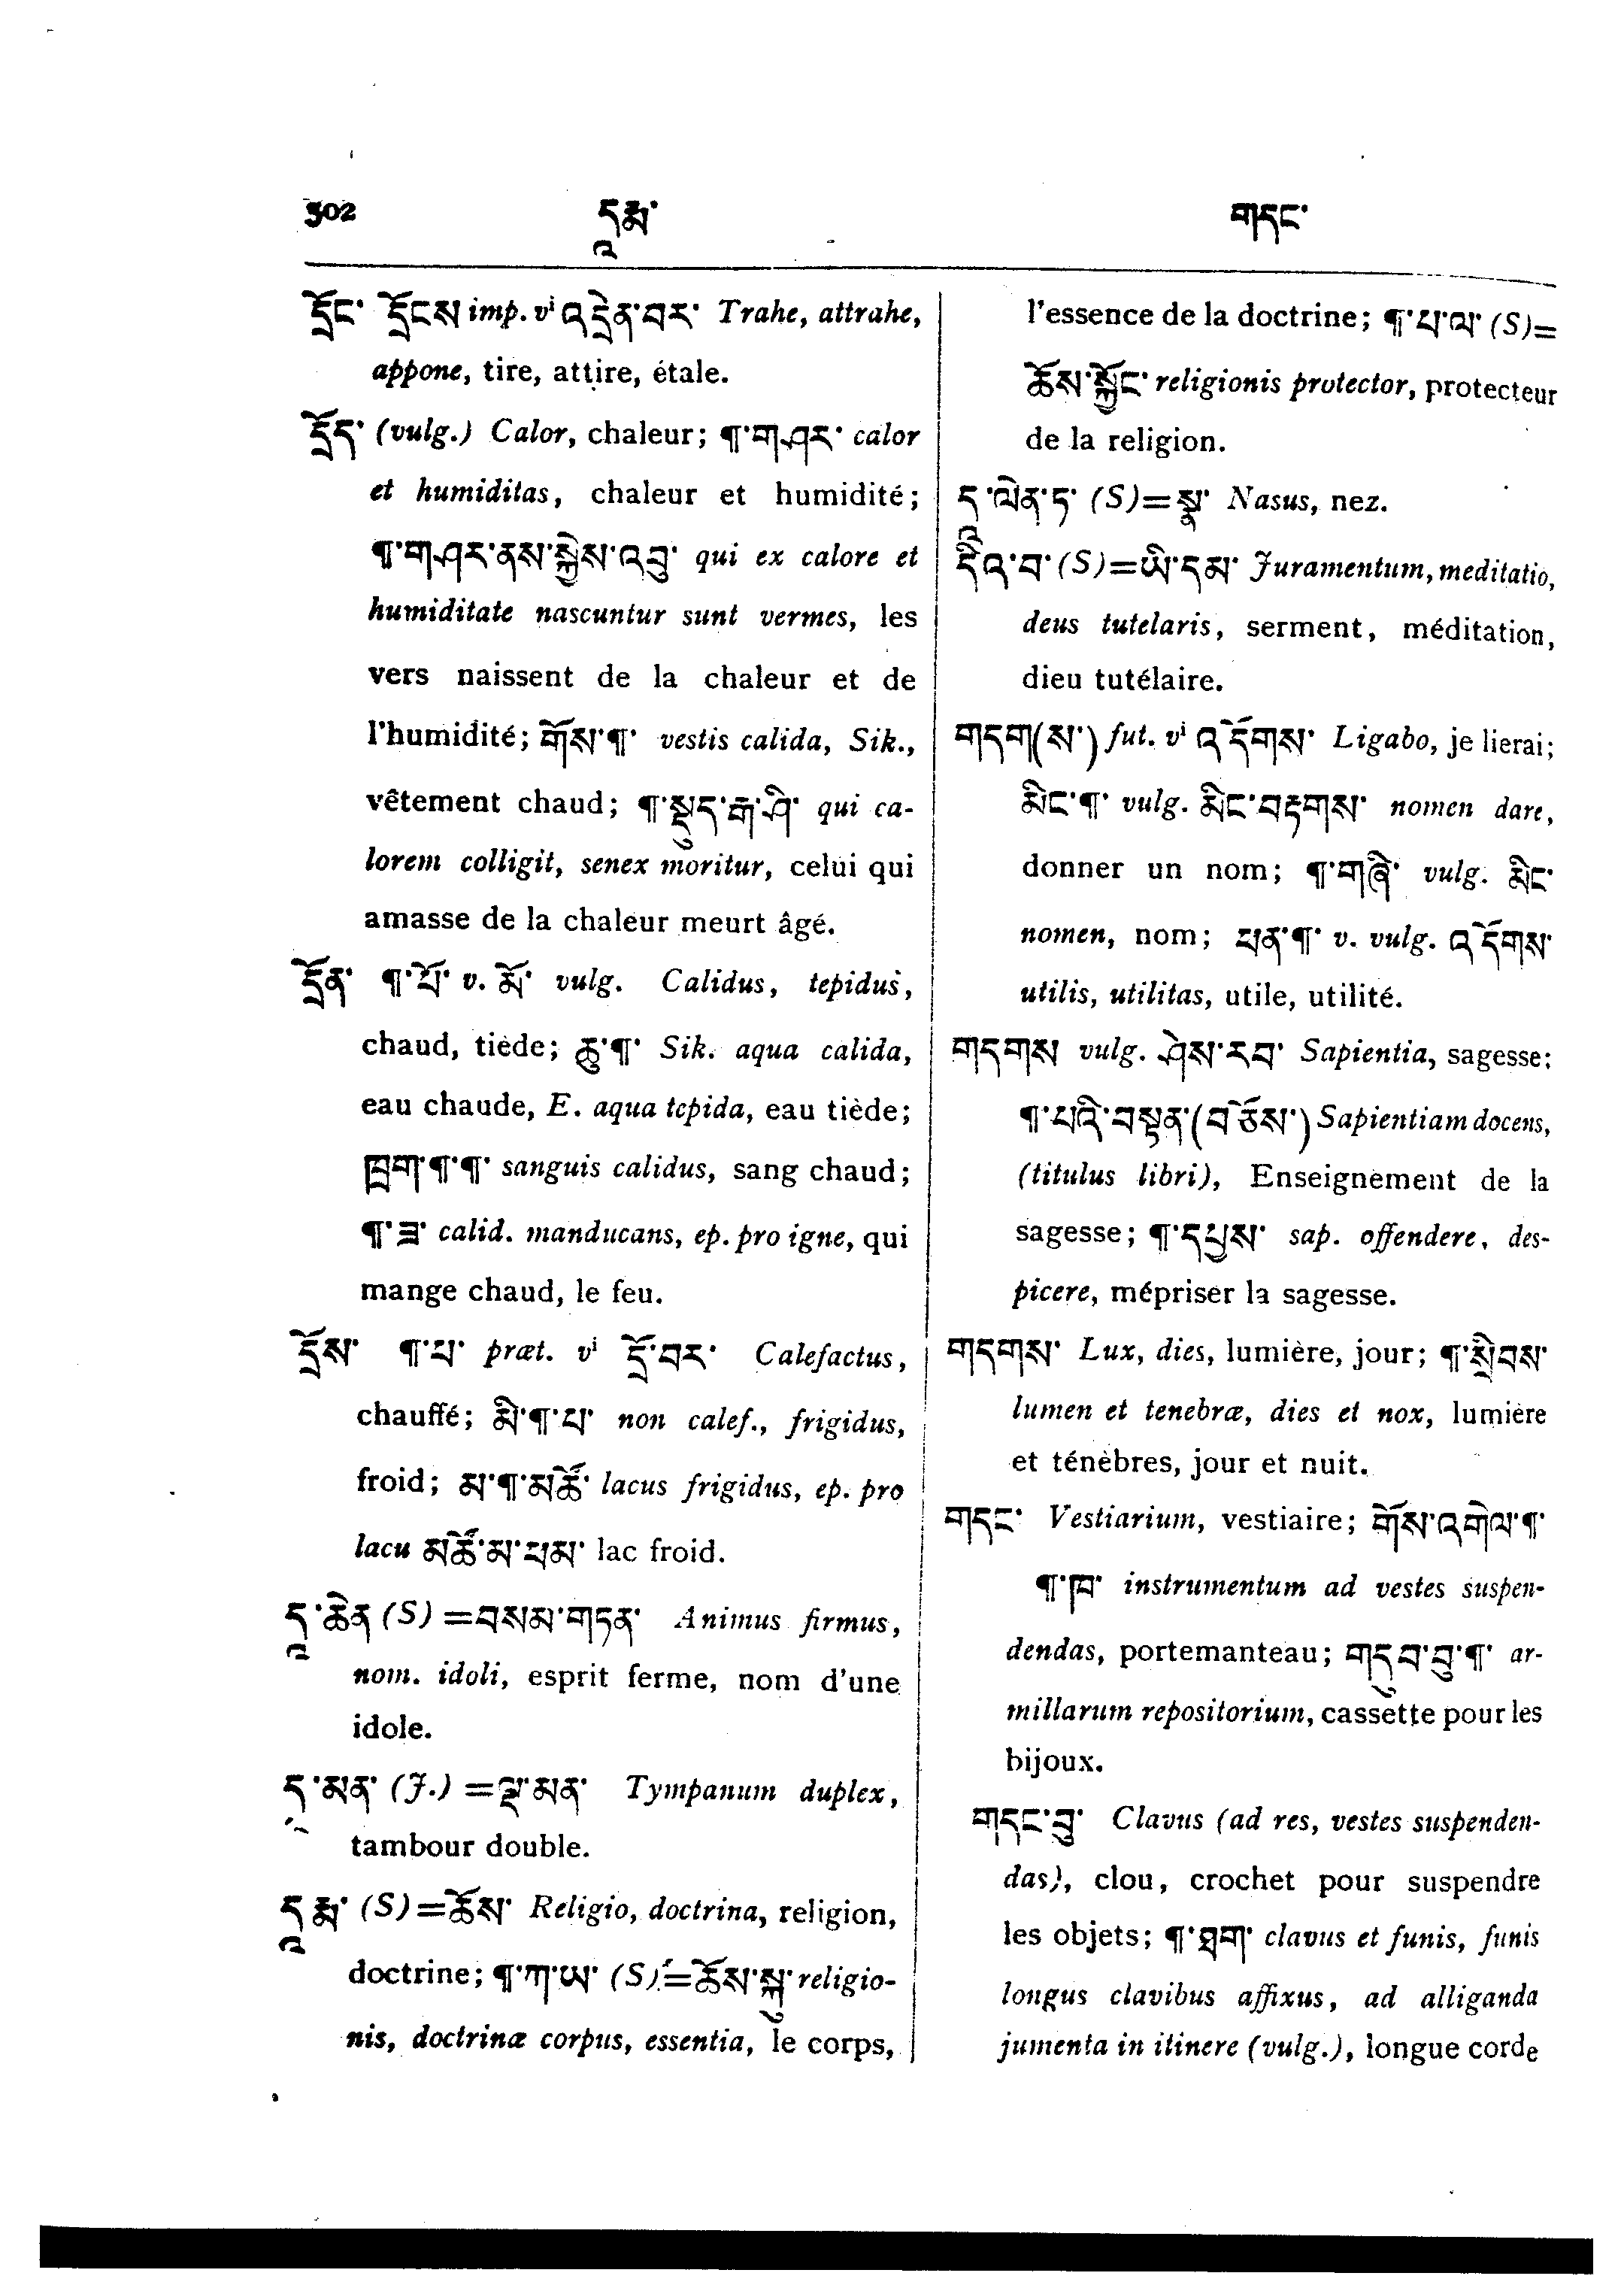 302 དྷརྨ་ གདང་
དྲོང་ དྲོངས imp. vⁱ འདྲེན་བར་ Trahe, attrahe,
appone, tire, attire, étale.
དྲོད་ (vulg.) Calor, chaleur; ¶་གཤར་ calor
et humiditas, chaleur et humidité;
¶་གཤར་ནས་སྐྱེས་འབུ་ qui ex calore et
humiditate nascuntur sunt vermes, les
vers naissent de la chaleur et de
l'humidité; གོས་¶་ vestis calida, Sik.,
vêtement chaud; ¶་སྡུད་རྒ་ཤི་ qui ca-
lorem colligit, senex moritur, celui qui
amasse de la chaleur meurt âgé.
དྲོན་ ¶་པོ་ v. མོ་ vulg. Calidus, tepidus,
chaud, tiède; ཆུ་¶་ Sik. aqua calida,
eau chaude, E. aqua tepida, eau tiède;
ཁྲག་¶་¶་ sanguis calidus, sang chaud;
¶་ཟ་ calid. manducans, ep. pro igne, qui
mange chaud, le feu.
དྲོས་ ¶་པ་ præt. vⁱ དྲོ་བར་ Calefactus,
chauffé; མི་¶་པ་ non calef., frigidus,
froid; མ་¶་མཚོ་ lacus frigidus, ep. pro
lacu མཚོ་མ་ཕམ་ lac froid.
དྷ་ཆེན (S) =བསམ་གཏན་ Animus firmus,
nom. idoli, esprit ferme, nom d'une
idole.
ད་མན་ (J.) =ལྡ་མན་ Tympanum duplex,
tambour double.
དྷརྨ་ (S)=ཆོས་ Religio, doctrina, religion,
doctrine; ¶་ཀ་ཡ་ (S)=ཆོས་སྐུ་ religio-
nis, doctrinæ corpus, essentia, le corps,
l'essence de la doctrine; ¶་པ་ལ་ (S)=
ཆོས་སྐྱོང་ religionis protector, protecteur
de la religion.
ད་ལེན་ད་ (S)=སྣ་ Nasus, nez.
དྷིའ་བ་ (S)=ཡི་དམ་ Juramentum, meditatio,
deus tutelaris, serment, méditation,
dieu tutélaire.
གདག(ས་) fut. vⁱ འདོགས་ Ligabo, je lierai;
མིང་¶་ vulg. མིང་བརྟགས་ nomen dare,
donner un nom; ¶་གཞི་ vulg. མིང་
nomen, nom; ཕན་¶་ v. vulg. འདོགས་
utilis, utilitas, utile, utilité.
གདགས vulg. ཤེས་རབ་ Sapientia, sagesse;
¶་པའི་བསྟན་(བཅོས་) Sapientiam docens,
(titulus libri), Enseignement de la
sagesse; ¶་དཔྱས་ sap. offendere, des-
picere, mépriser la sagesse.
གདགས་ Lux, dies, lumière, jour; ¶་སྲིབས་
lumen et tenebræ, dies et nox, lumière
et ténèbres, jour et nuit.
གདང་ Vestiarium, vestiaire; གོས་འགེལ་¶་
¶་ཁ་ instrumentum ad vestes suspen-
dendas, portemanteau; གདུ་བ་བུ་¶་ ar-
millarum repositorium, cassette pour les
bijoux.
གདང་བུ་ Clavus (ad res, vestes suspenden-
das), clou, crochet pour suspendre
les objets; ¶་ཐག་ clavus et funis, funis
longus clavibus affixus, ad alliganda
jumenta in itinere (vulg.), longue corde